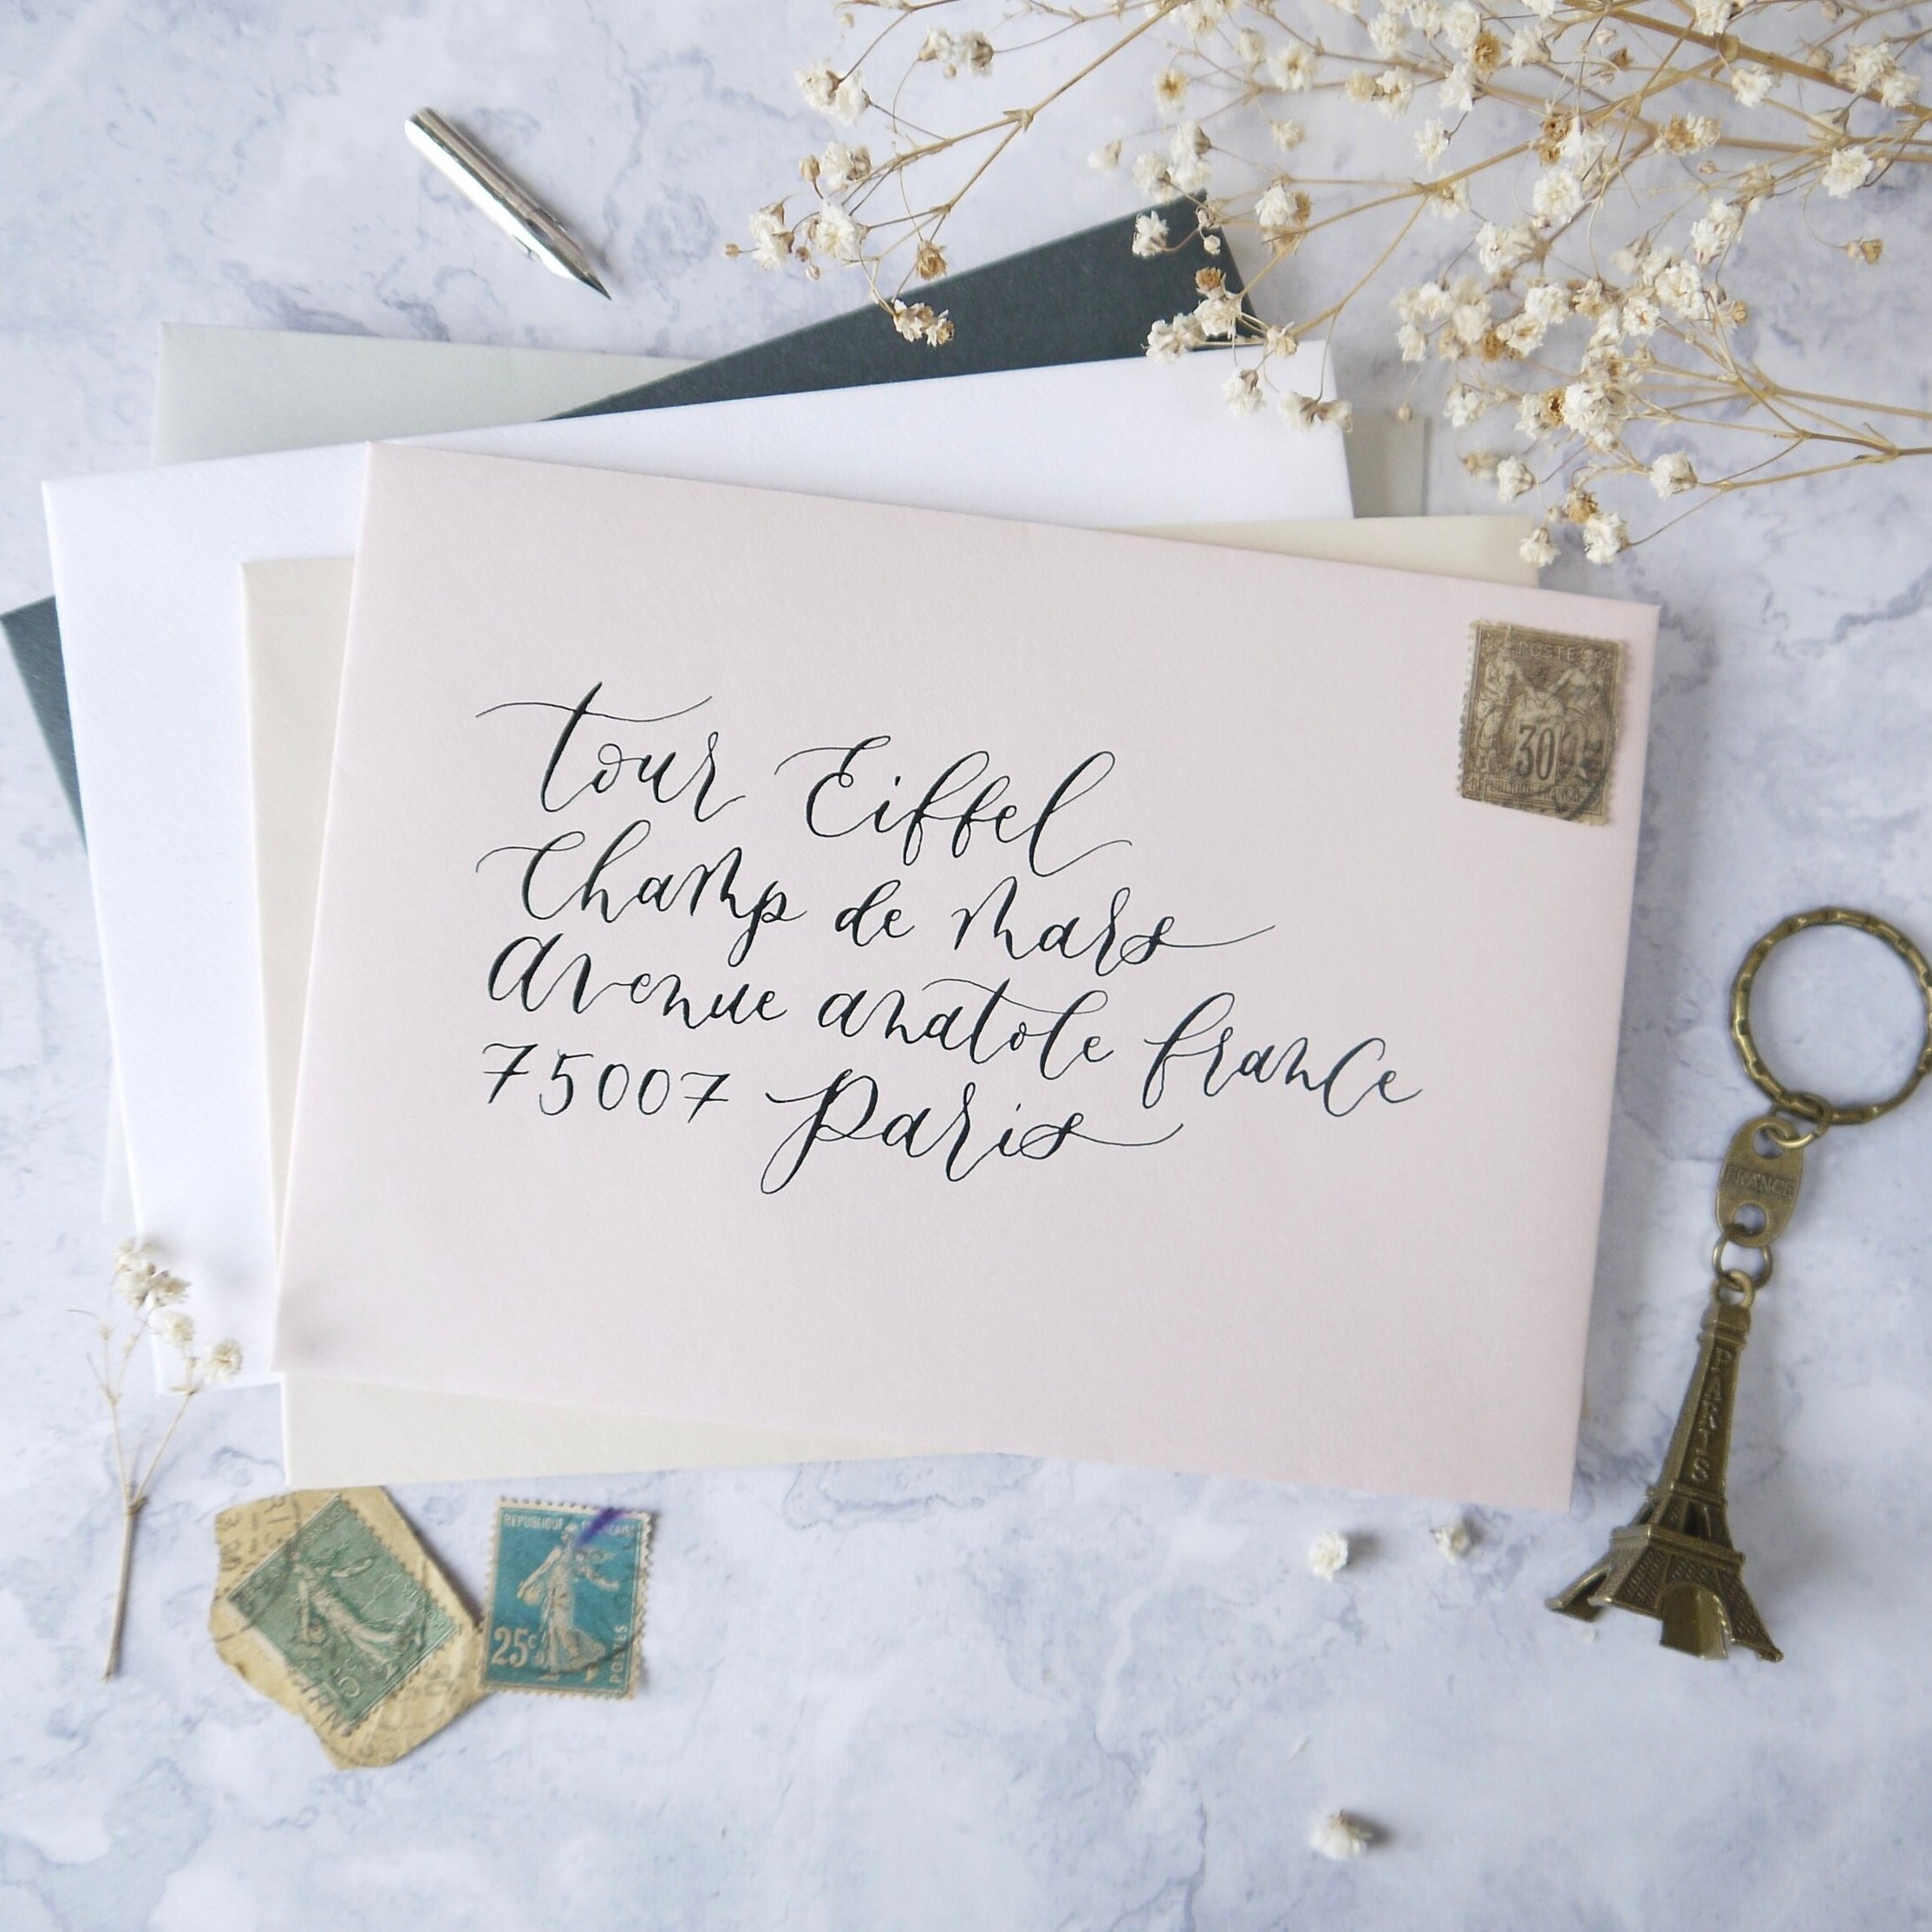 tour Eiffel
Champ de Mars
Avenue anatole france
75007 Paris
POSTES
30
FRANCE
PARIS
REPUBLIQUE
25c
POSTES
5c